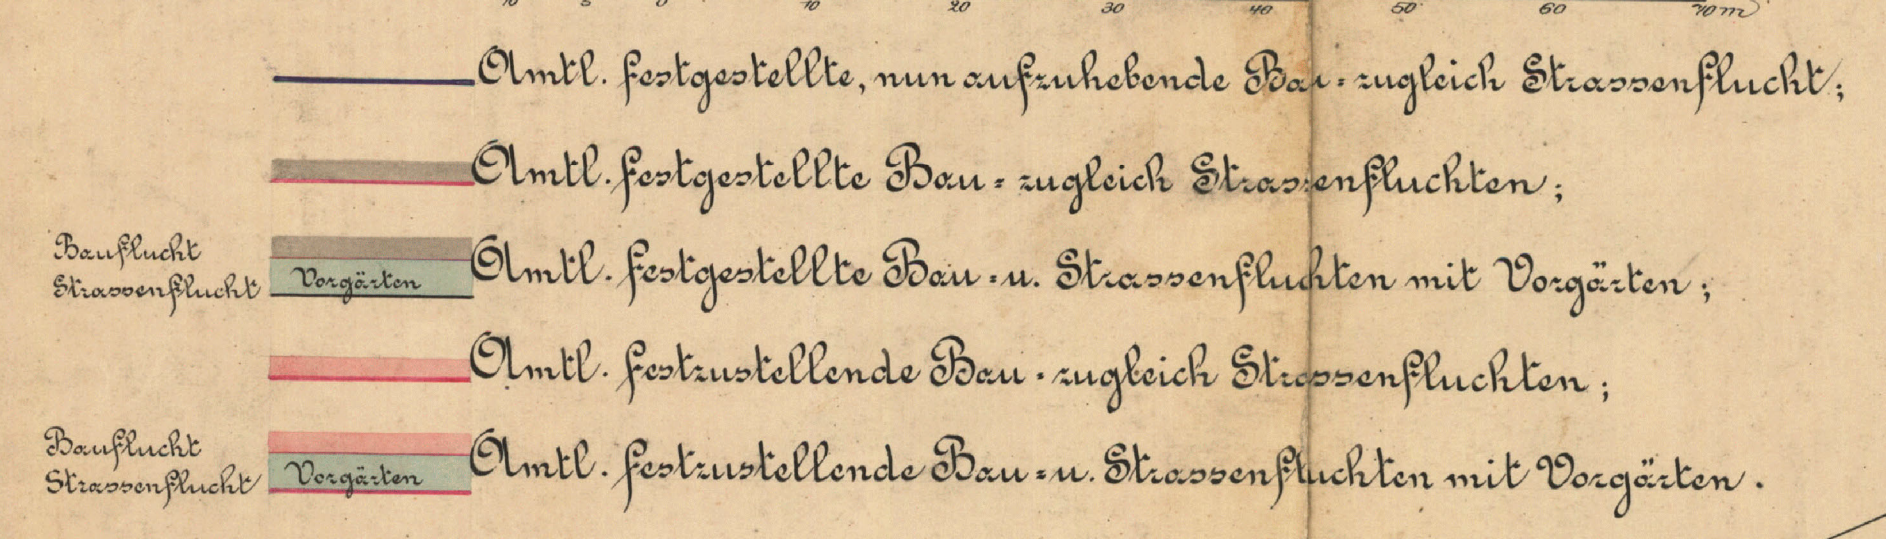 10 5 0 10 20 30 40 50 60 70 m
Amtl. festgestellte, nun aufzuhebende Bau- zugleich Strassenflucht;
Amtl. festgestellte Bau- zugleich Strassenfluchten;
Bauflucht
Strassenflucht
Vorgärten
Amtl. festgestellte Bau- u. Strassenfluchten mit Vorgärten;
Amtl. festzustellende Bau- zugleich Strassenfluchten;
Bauflucht
Strassenflucht
Vorgärten
Amtl. festzustellende Bau- u. Strassenfluchten mit Vorgärten.